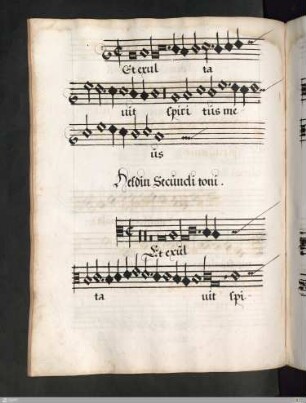 Et exul ta
uit spiri tus me
us
Secundi toni.
Et exul
ta uit spi